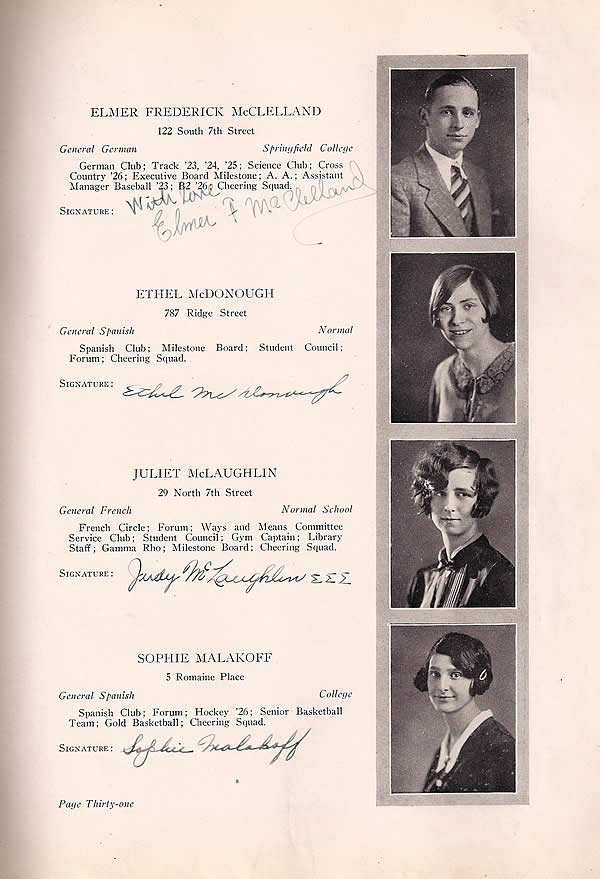 ELMER FREDERICK McCLELLAND
122 South 7th Street
General German Springfield College
German Club; Track '23, '24, '25; Science Club; Cross
Country '26; Executive Board Milestone; A. A.; Assistant
Manager Baseball '23; B2 '26; Cheering Squad.
With Love
SIGNATURE: Elmer F McClelland
ETHEL McDONOUGH
787 Ridge Street
General Spanish Normal
Spanish Club; Milestone Board; Student Council;
Forum; Cheering Squad.
SIGNATURE: Ethel McDonough
JULIET McLAUGHLIN
29 North 7th Street
General French Normal School
French Circle; Forum; Ways and Means Committee
Service Club; Student Council; Gym Captain; Library
Staff; Gamma Rho; Milestone Board; Cheering Squad.
SIGNATURE: Judy McLaughlin ΣΣΣ
SOPHIE MALAKOFF
5 Romaine Place
General Spanish College
Spanish Club; Forum; Hockey '26; Senior Basketball
Team; Gold Basketball; Cheering Squad.
SIGNATURE: Sophie Malakoff
Page Thirty-one